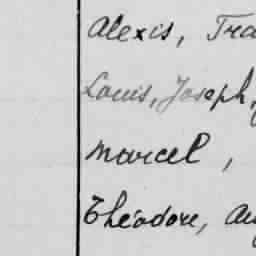 Alexis, Tra
Louis, Joseph,
Marcel,
Théodore, Au